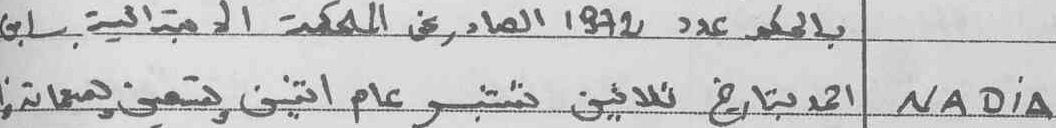 بالحكم عدد 1972 الصادر عن المحكمة الابتدائية بسابق
احمد بتاريخ ثلاثين شتنبر عام اثنين وتسعين وتسعمائة NADiA